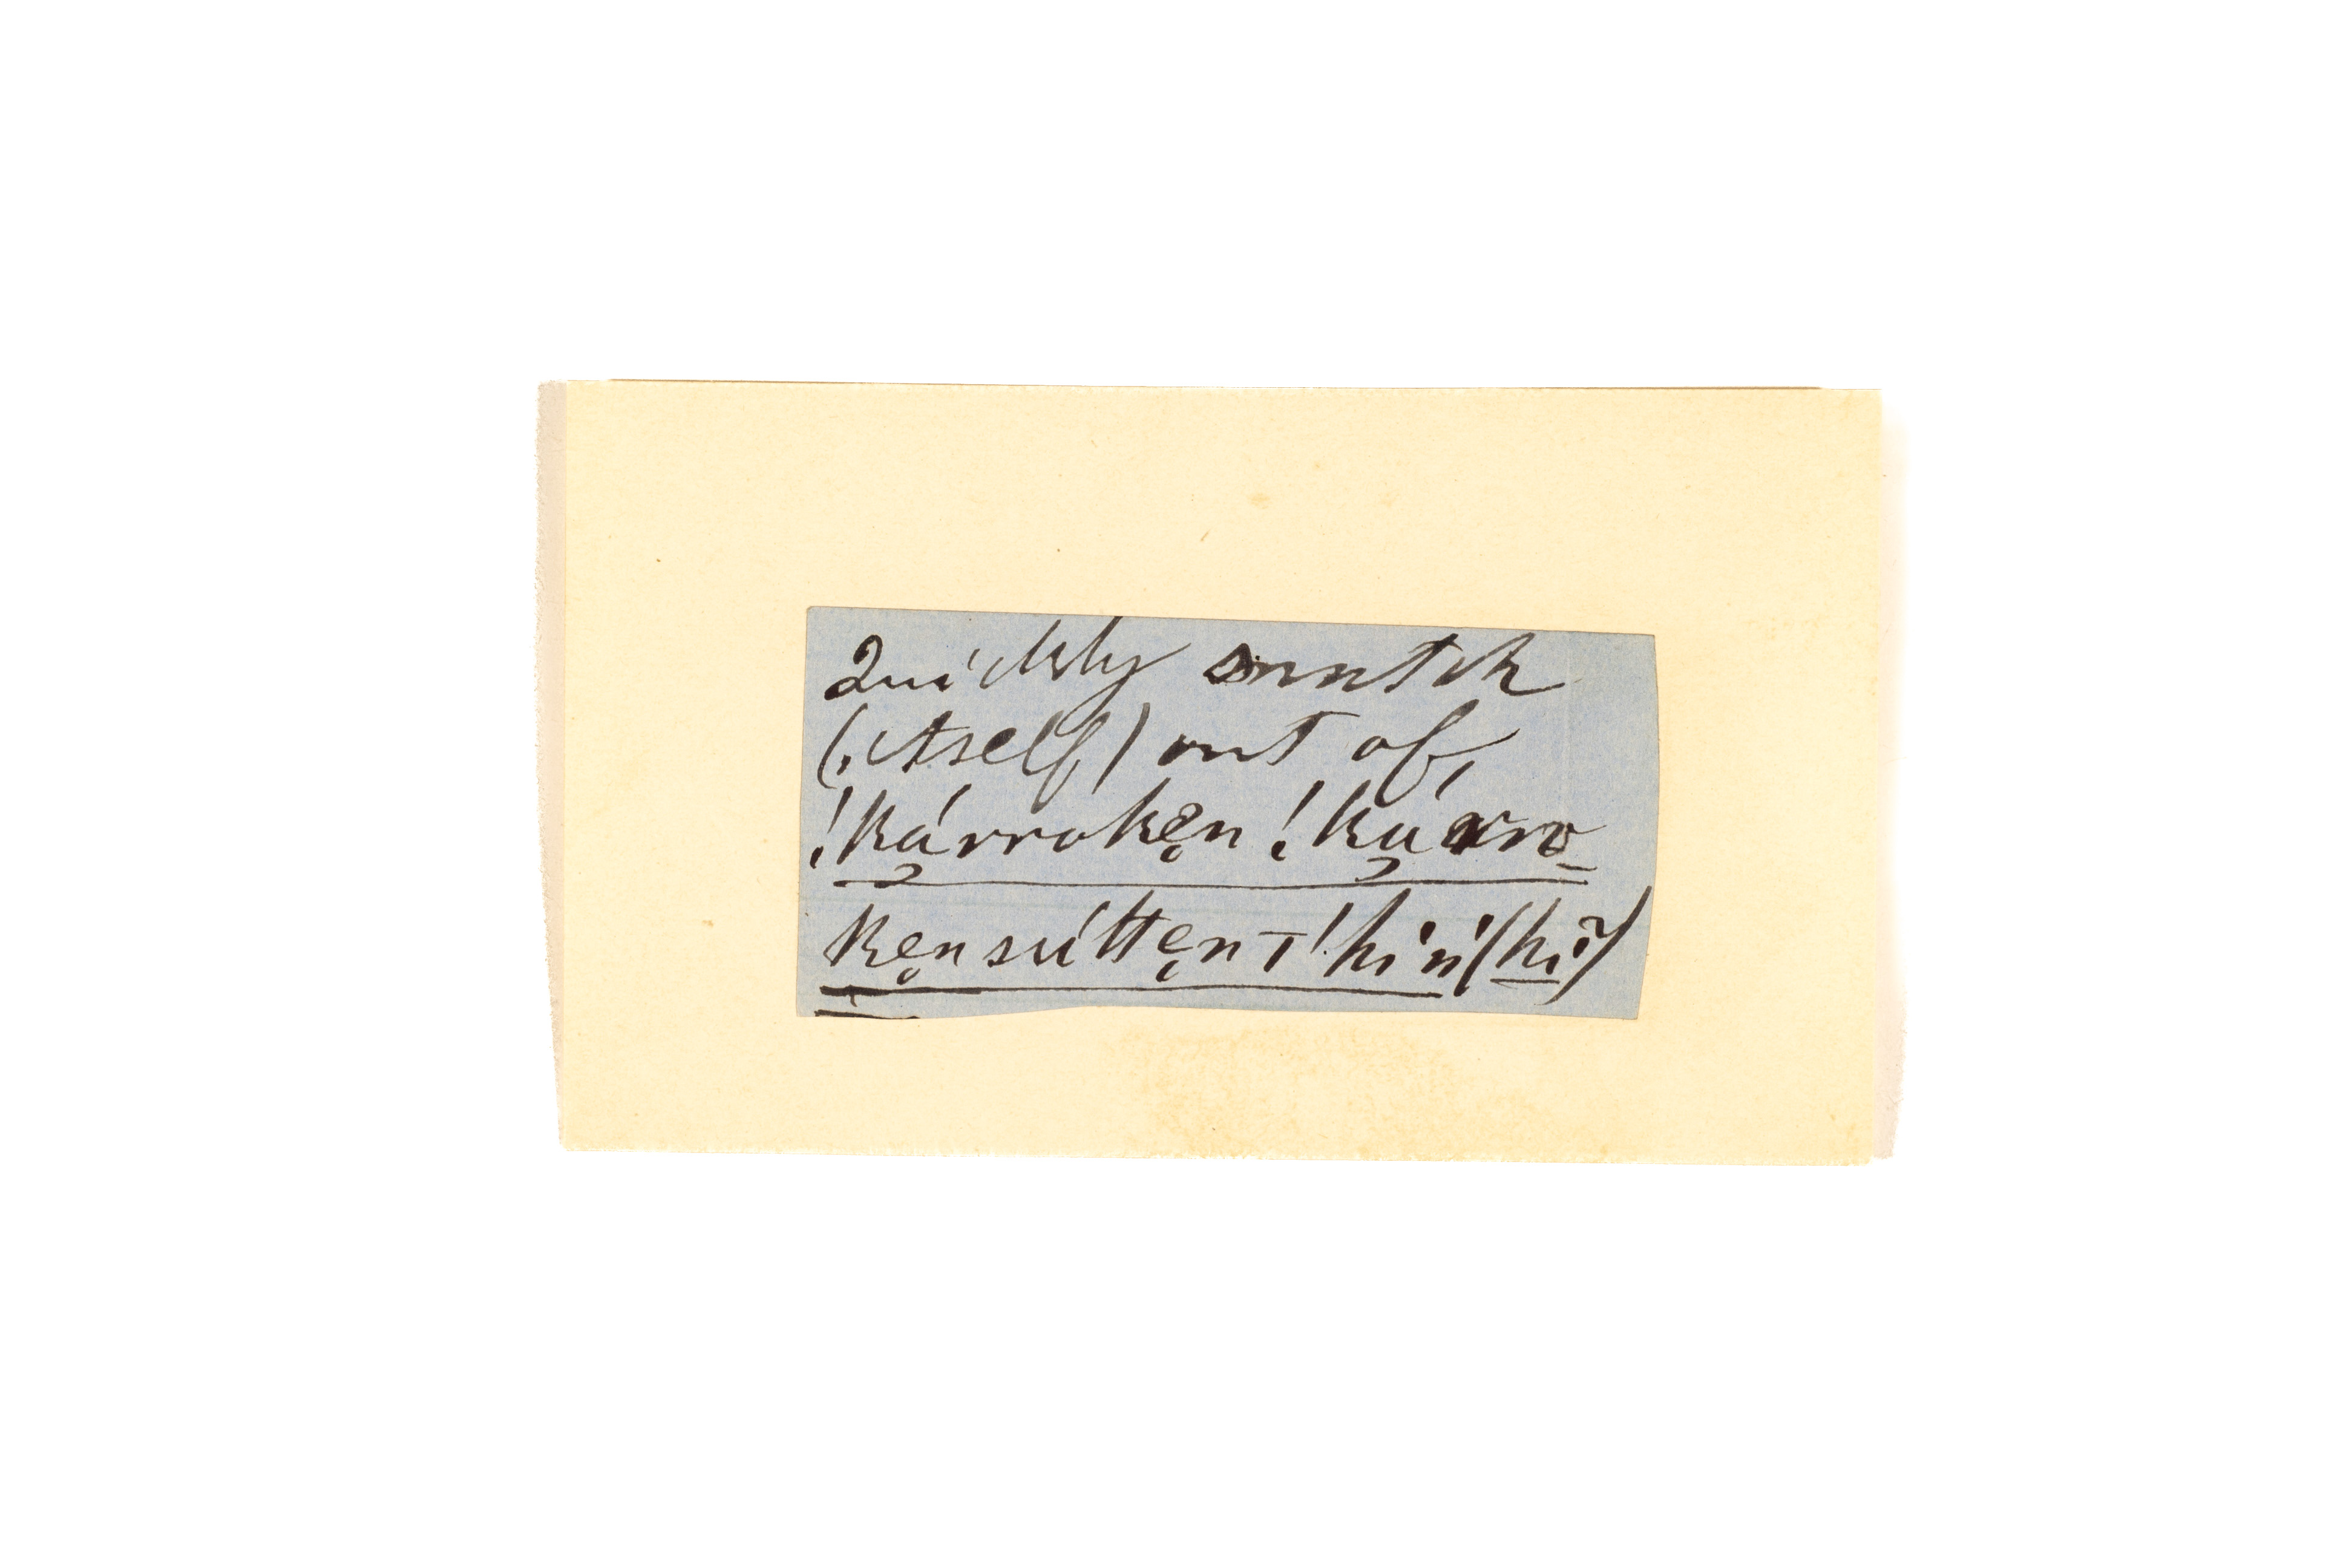 Quickly snatch
(itself) out of,
!k̢árroken̥ !k̢árro-
ken̥ súttẹn T!hi'n'(hĩ)